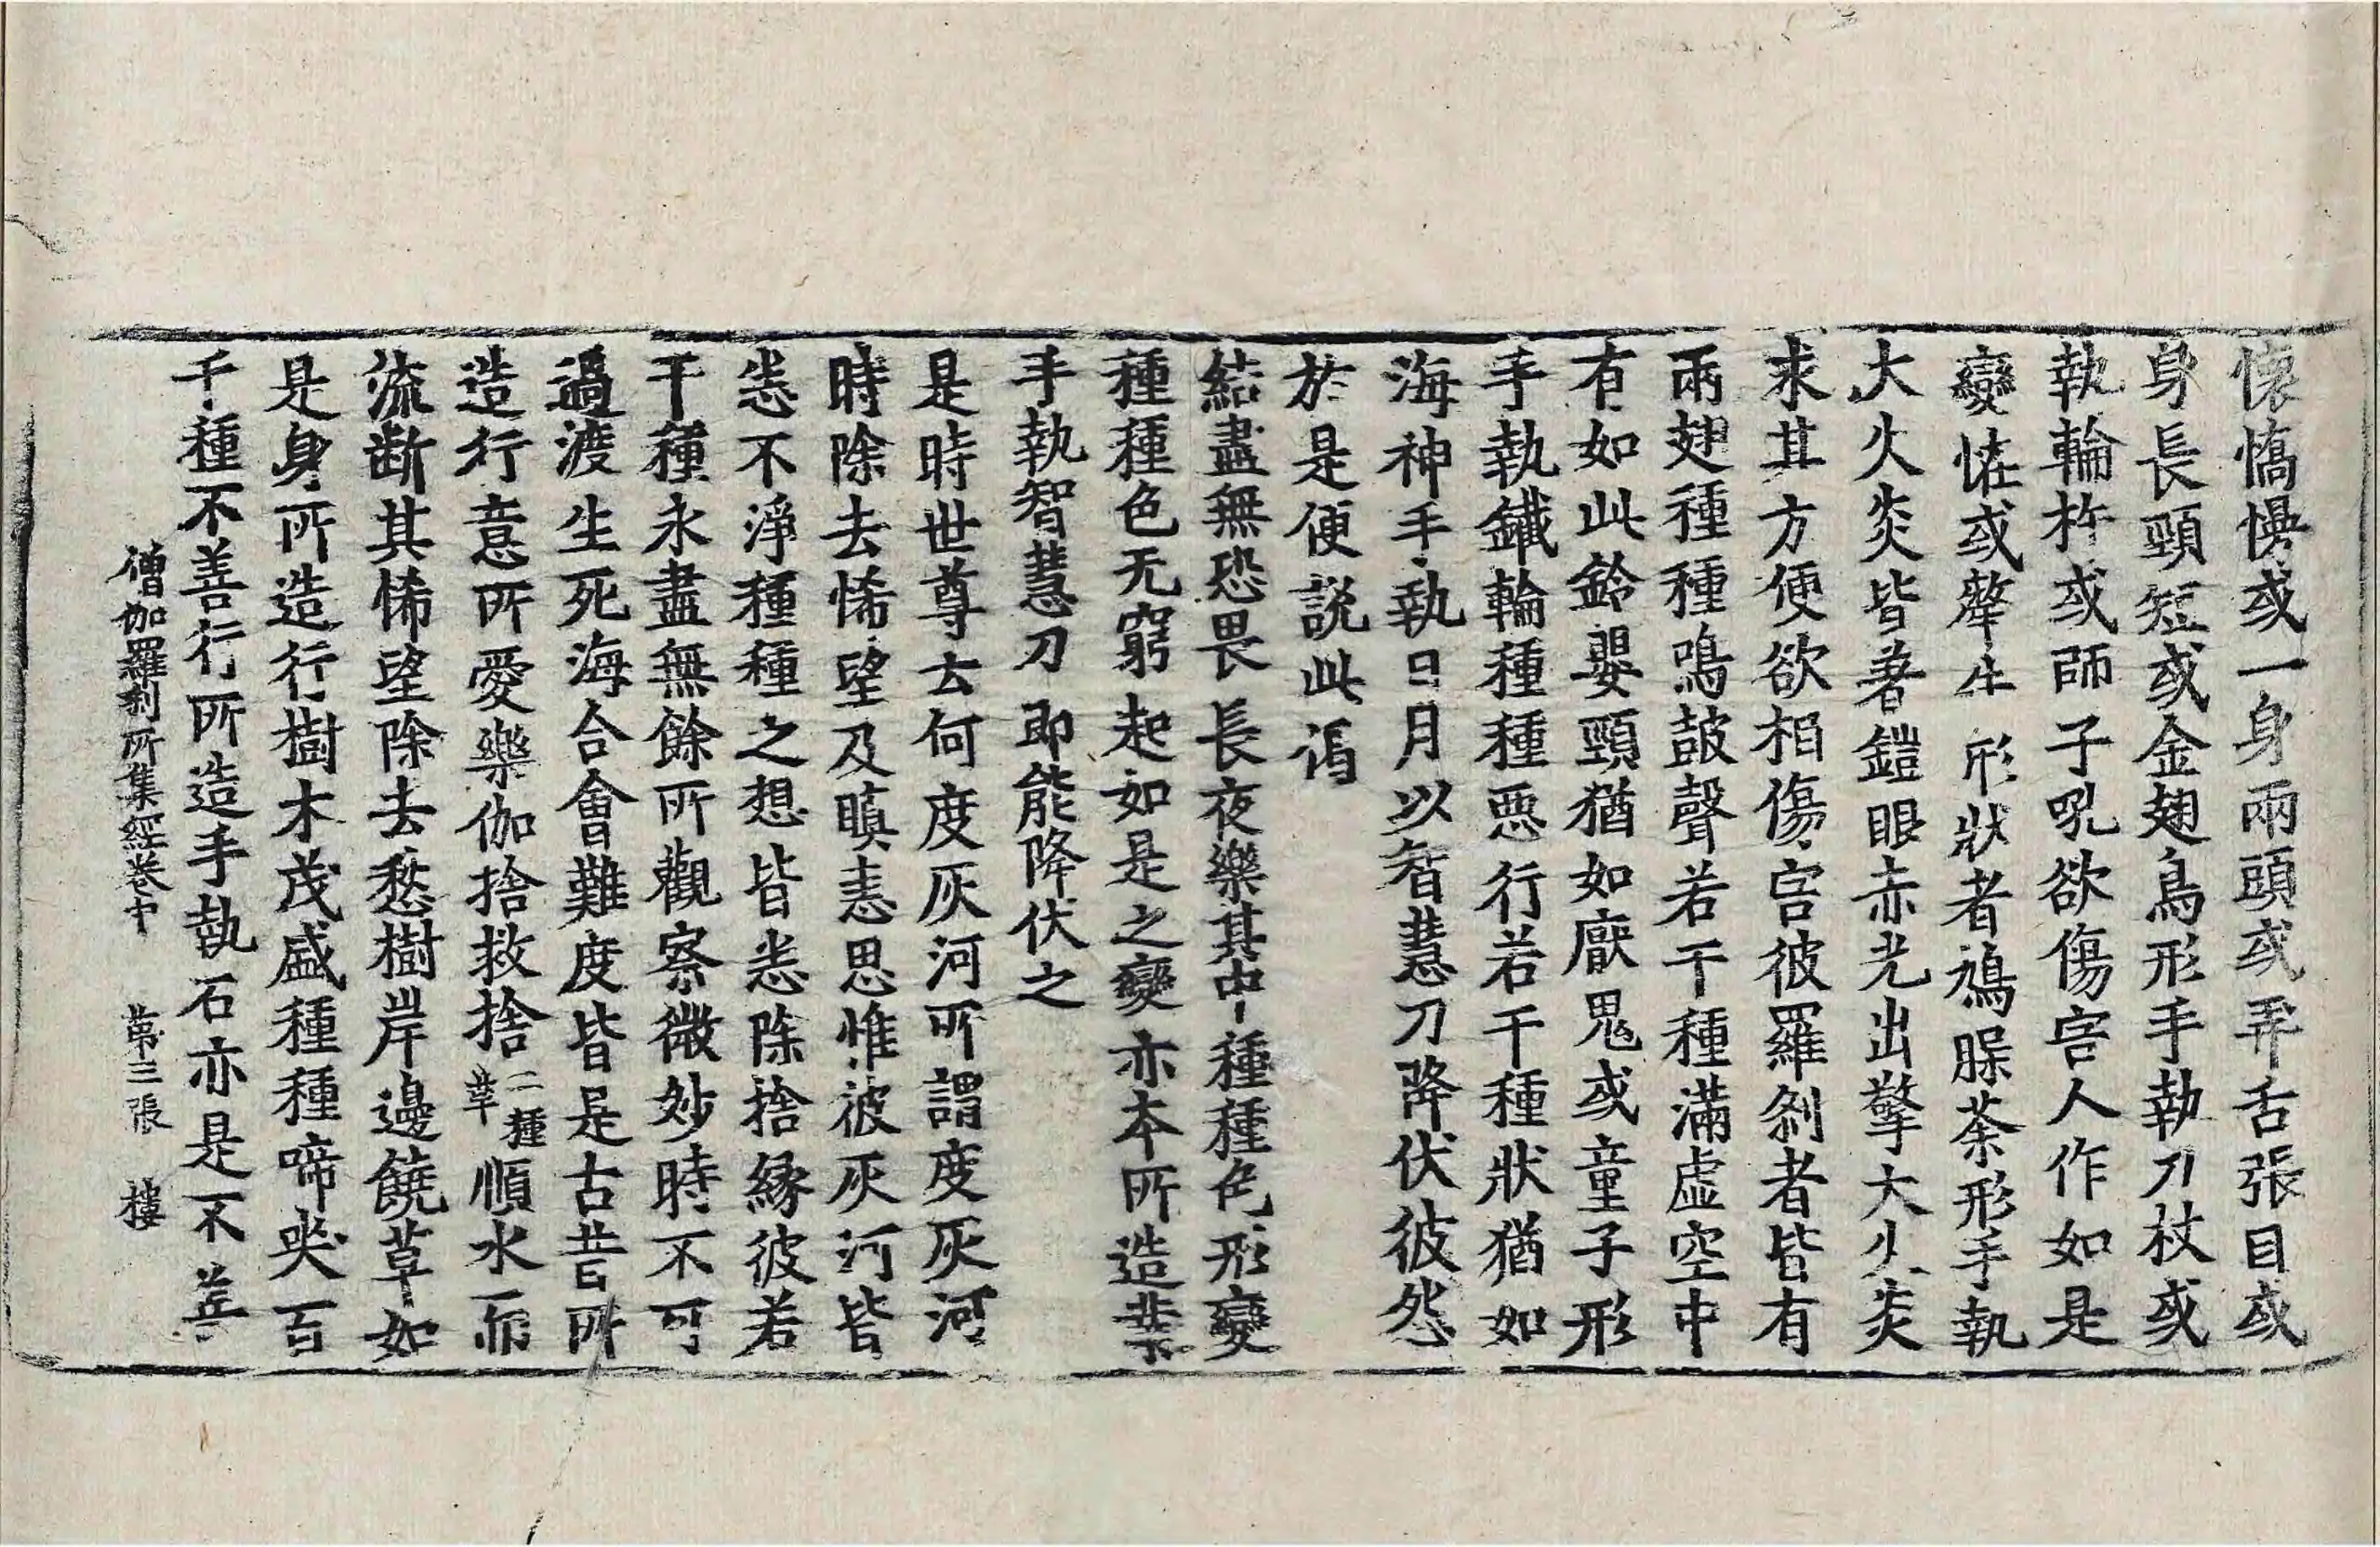 懷憍慢或一身兩頭或弄舌張目或
身長頸短或金翅鳥形手執刀杖或
執輪杵或師子吼欲傷害人作如是
變恠或犛牛形狀者鵄脲荼形手執
大火炎皆著鎧眼赤光出擎大火炎
求其方便欲相傷害彼羅刹者皆有
兩翅種種鳴鼓聲若干種滿虛空中
有如此鈴嬰頸猶如厭鬼或童子形
手執鐵輪種種惡行若干種狀猶如
海神手執日月以智慧刀降伏彼怨
於是便說此偈
結盡無恐畏　長夜樂其中種種色形變
種種色无窮　起如是之變　亦本所造業
手執智慧刀　即能降伏之
是時世尊去何度灰河所謂度灰河
時除去悕望及瞋恚思惟彼灰河皆
恙不淨種種之想皆恙除捨緣彼若
干種永盡無餘所觀察微妙時不可
過渡生死海合會難度皆是古昔所
造行意所愛樂伽捨救捨二種華順水而
流断其悕望除去愁樹岸邊饒草如
是身所造行樹木茂盛種種啼哭百
千種不善行所造手執石亦是不善
僧伽羅刹所集經卷中　第三張　樓